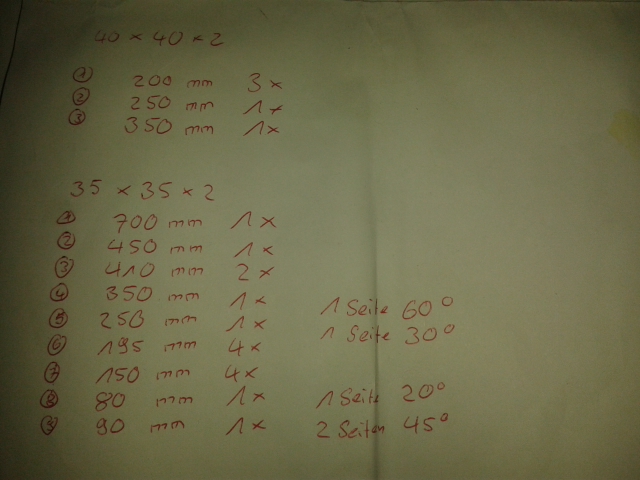 40 x 40 x 2
① 200 mm 3x
② 250 mm 1x
③ 350 mm 1x
35 x 35 x 2
① 700 mm 1x
② 450 mm 1x
③ 410 mm 2x
④ 350 mm 1x 1 Seite 60°
⑤ 250 mm 1x 1 Seite 30°
⑥ 195 mm 4x
⑦ 150 mm 4x
⑧ 80 mm 1x 1 Seite 20°
⑨ 90 mm 1x 2 Seiten 45°